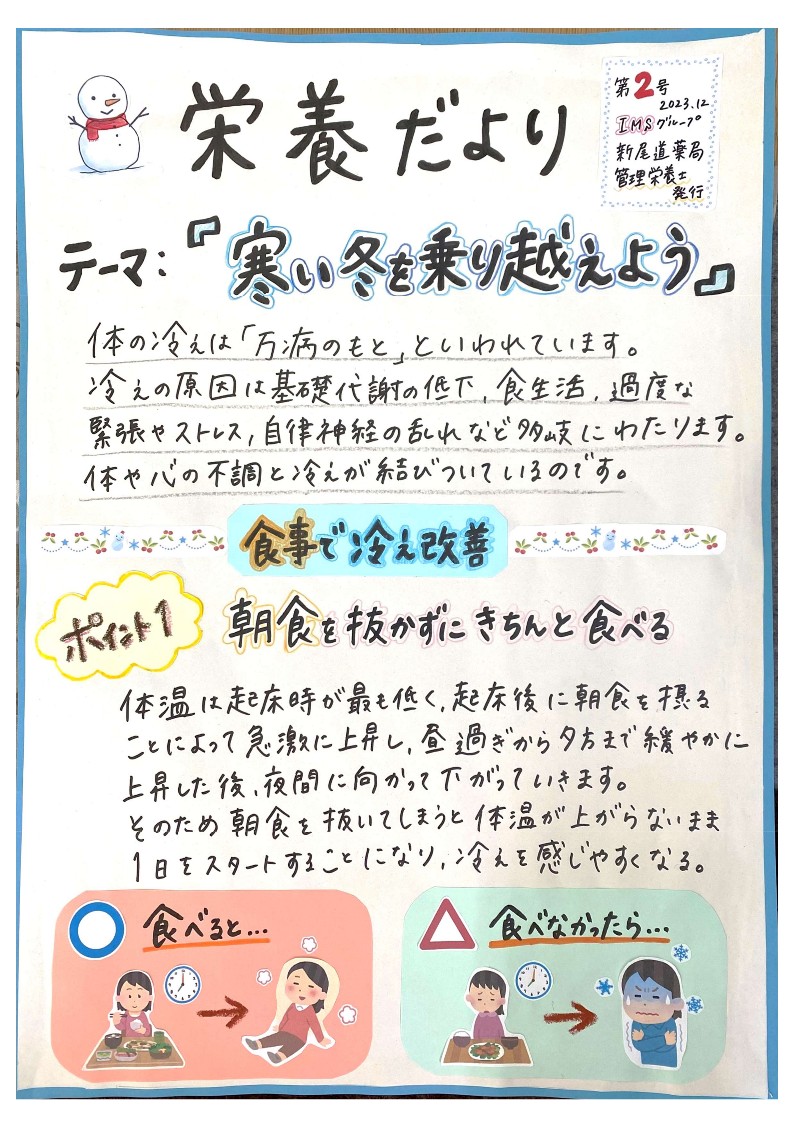 栄養だより
第2号
2023.12
IMSグループ
新尾道薬局
管理栄養士
発行
テーマ:『寒い冬を乗り越えよう』
体の冷えは「万病のもと」といわれています。
冷えの原因は基礎代謝の低下,食生活,過度な
緊張やストレス,自律神経の乱れなど多岐にわたります。
体や心の不調と冷えが結びついているのです。
食事で冷え改善
ポイント1
朝食を抜かずにきちんと食べる
体温は起床時が最も低く,起床後に朝食を摂る
ことによって急激に上昇し,昼過ぎから夕方まで緩やかに
上昇した後、夜間に向かって下がっていきます。
そのため朝食を抜いてしまうと体温が上がらないまま
1日をスタートすることになり,冷えを感じやすくなる。
食べると…
食べなかったら…